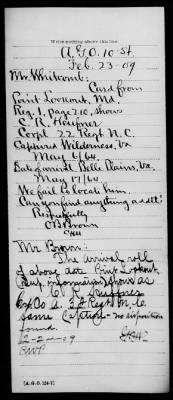 Write nothing above this line.
A.G.O. 10-St.
Feb. 23-09
Mr. Whitcomb:
Card from
Point Lookout, Md.
Reg. 1, page 210, shows
C. R. Heifner
Corpl 22 Regt N.C.
Captured Wilderness, Va.
May 6/64.
Date of arrival Belle Plains, Va.
May 17/64
We fail to locate him.
Can you find anything addtl?
Respectfully
Brown
Mr Brown:
The arrival roll
of above date Point Lookout,
information shows as
C. R.
Co. Regt N.C.
same Caption - no disposition
found.
2-24-09
[A.G.O. 124-1]